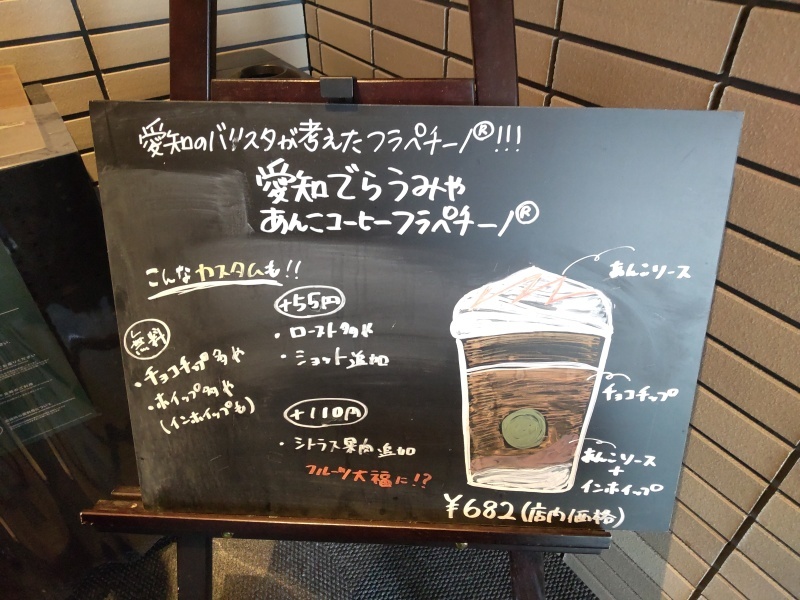 愛知のバリスタが考えたフラペチーノ®!!!
愛知でらうみゃ
あんこコーヒーフラペチーノ®
こんなカスタムも!!
無料
・チョコチップ多め
・ホイップ多め
(インホイップも)
+55円
・ロースト多め
・ショット追加
+110円
・シトラス果肉追加
フルーツ大福に!?
あんこソース
チョコチップ
あんこソース
+
インホイップ
¥682(店内価格)